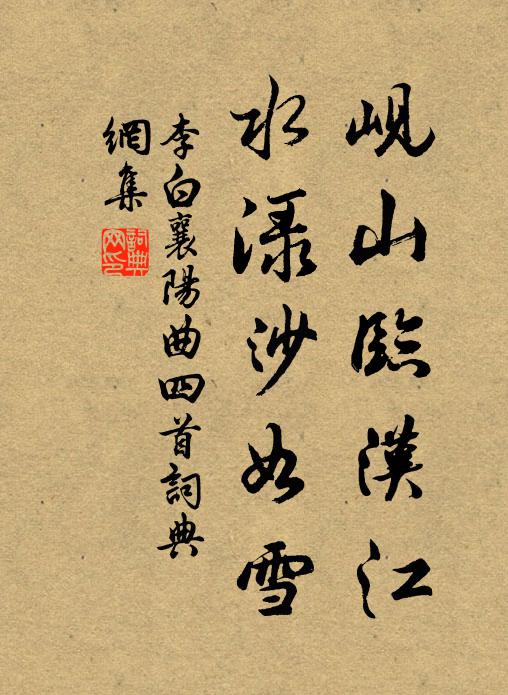 峴山臨漢江
水渌沙如雪
李白襄陽曲四首詞典
網集
詞典網印